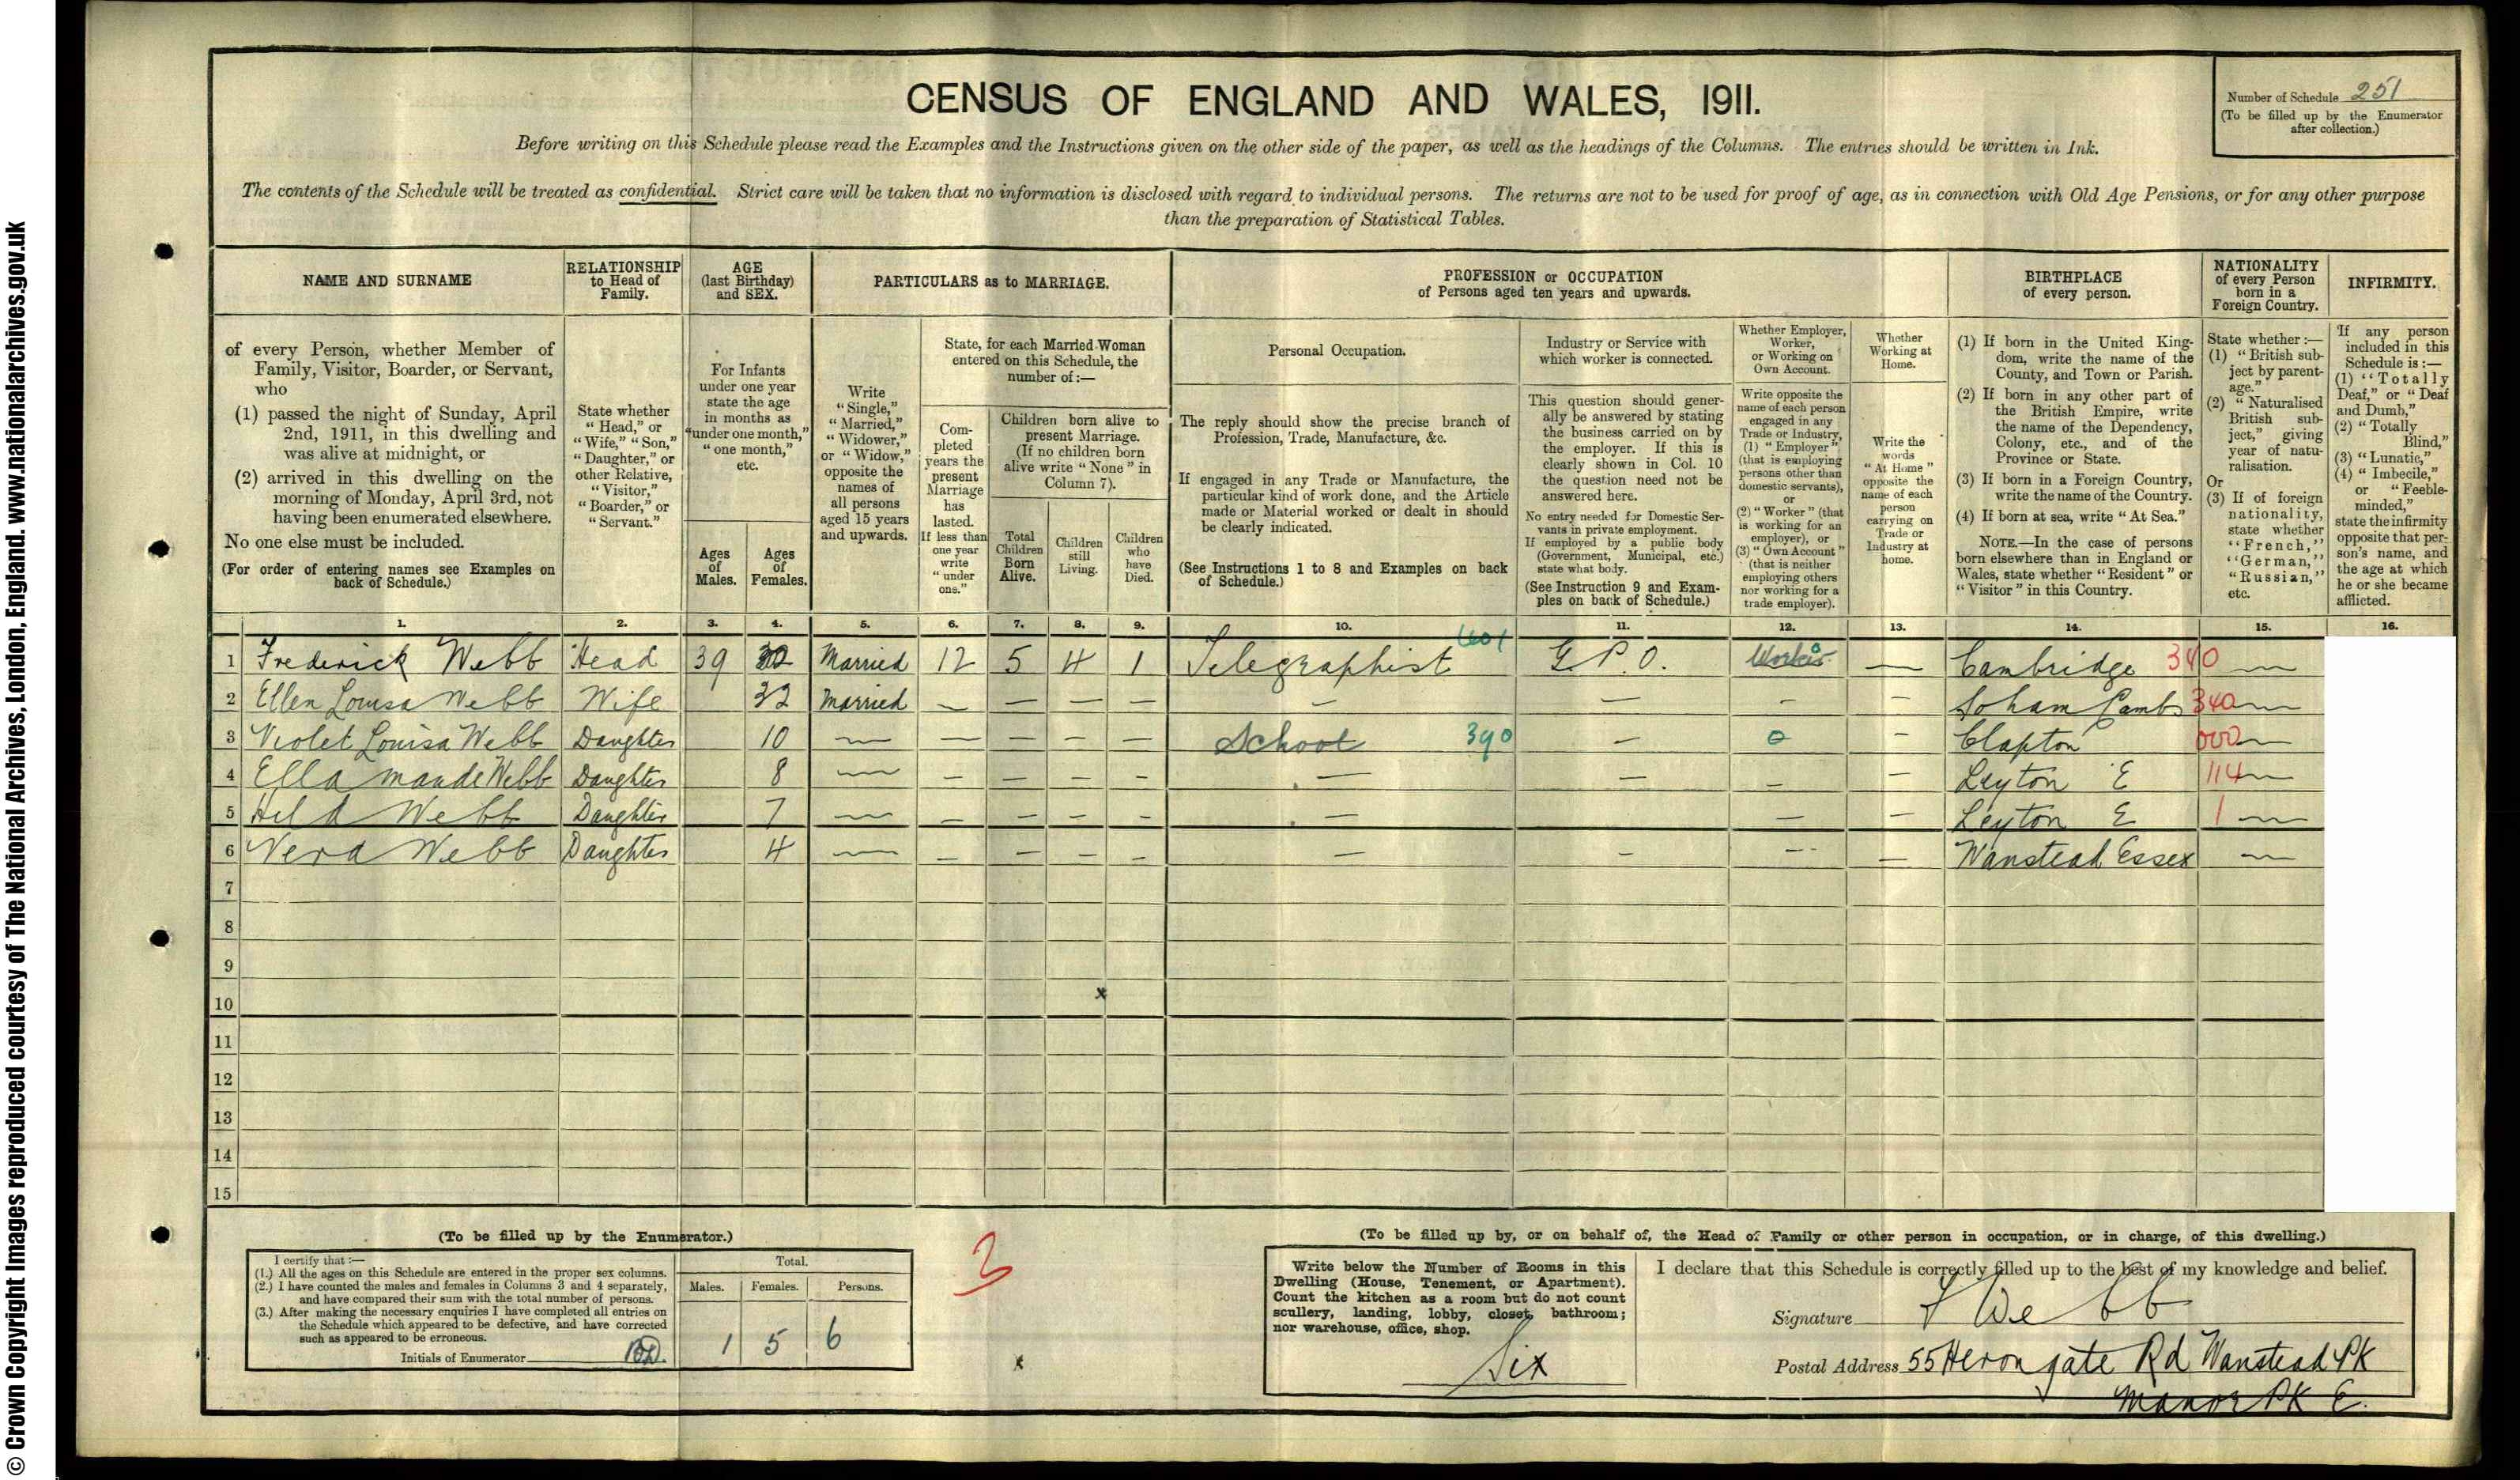 © Crown Copyright Images reproduced courtesy of The National Archives, London, England. www.nationalarchives.gov.uk
CENSUS OF ENGLAND AND WALES, 1911.
Number of Schedule 251
(To be filled up by the Enumerator
after collection.)
Before writing on this Schedule please read the Examples and the Instructions given on the other side of the paper, as well as the headings of the Columns. The entries should be written in Ink.
The contents of the Schedule will be treated as confidential. Strict care will be taken that no information is disclosed with regard to individual persons. The returns are not to be used for proof of age, as in connection with Old Age Pensions, or for any other purpose
than the preparation of Statistical Tables.
NAME AND SURNAME
of every Person, whether Member of
Family, Visitor, Boarder, or Servant,
who
(1) passed the night of Sunday, April
2nd, 1911, in this dwelling and
was alive at midnight, or
(2) arrived in this dwelling on the
morning of Monday, April 3rd, not
having been enumerated elsewhere.
No one else must be included.
(For order of entering names see Examples on
back of Schedule.)
RELATIONSHIP
to Head of
Family.
State whether
"Head," or
"Wife," "Son,"
"Daughter," or
other Relative,
"Visitor,"
"Boarder," or
"Servant."
AGE
(last Birthday)
and SEX.
For Infants
under one year
state the age
in months as
"under one month,"
"one month,"
etc.
Ages
of
Males.
Ages
of
Females.
PARTICULARS as to MARRIAGE.
Write
"Single,"
"Married,"
"Widower,"
or "Widow,"
opposite the
names of
all persons
aged 15 years
and upwards.
State, for each Married Woman
entered on this Schedule, the
number of:—
Com-
pleted
years the
present
Marriage
has
lasted.
If less than
one year
write
"under
one."
Children born alive to
present Marriage.
(If no children born
alive write "None" in
Column 7).
Total
Children
Born
Alive.
Children
still
Living.
Children
who
have
Died.
PROFESSION or OCCUPATION
of Persons aged ten years and upwards.
Personal Occupation.
The reply should show the precise branch of
Profession, Trade, Manufacture, &c.
If engaged in any Trade or Manufacture, the
particular kind of work done, and the Article
made or Material worked or dealt in should
be clearly indicated.
(See Instructions 1 to 8 and Examples on back
of Schedule.)
Industry or Service with
which worker is connected.
This question should gener-
ally be answered by stating
the business carried on by
the employer. If this is
clearly shown in Col. 10
the question need not be
answered here.
No entry needed for Domestic Ser-
vants in private employment.
If employed by a public body
(Government, Municipal, etc.)
state what body.
(See Instruction 9 and Exam-
ples on back of Schedule.)
Whether Employer,
Worker,
or Working on
Own Account.
Write opposite the
name of each person
engaged in any
Trade or Industry,
(1) "Employer"
(that is employing
persons other than
domestic servants),
or
(2) "Worker" (that
is working for an
employer), or
(3) "Own Account"
(that is neither
employing others
nor working for a
trade employer).
Whether
Working at
Home.
Write the
words
"At Home"
opposite the
name of each
person
carrying on
Trade or
Industry at
home.
BIRTHPLACE
of every person.
(1) If born in the United King-
dom, write the name of the
County, and Town or Parish.
(2) If born in any other part of
the British Empire, write
the name of the Dependency,
Colony, etc., and of the
Province or State.
(3) If born in a Foreign Country,
write the name of the Country.
(4) If born at sea, write "At Sea."
NOTE.—In the case of persons
born elsewhere than in England or
Wales, state whether "Resident" or
"Visitor" in this Country.
NATIONALITY
of every Person
born in a
Foreign Country.
State whether:—
(1) "British sub-
ject by parent-
age."
(2) "Naturalised
British sub-
ject," giving
year of natu-
ralisation.
Or
(3) If of foreign
nationality,
state whether
"French,"
"German,"
"Russian,"
etc.
INFIRMITY.
If any person
included in this
Schedule is:—
(1) "Totally
Deaf," or "Deaf
and Dumb,"
(2) "Totally
Blind,"
(3) "Lunatic,"
(4) "Imbecile,"
or "Feeble-
minded,"
state the infirmity
opposite that per-
son's name, and
the age at which
he or she became
afflicted.
1. 2. 3. 4. 5. 6. 7. 8. 9. 10. 11. 12. 13. 14. 15. 16.
1 Frederick Webb Head 39 Married 12 5 4 1 Telegraphist 601 G.P.O. Worker — Cambridge 340 —
2 Ellen Louisa Webb Wife 32 Married — — — — — — — — Soham Cambs 340 —
3 Violet Louisa Webb Daughter 10 — — — — — School 390 — 0 — Clapton 000 —
4 Ella Maude Webb Daughter 8 — — — — — — — — — Leyton E 114 —
5 Hild Webb Daughter 7 — — — — — — — — Leyton E 1 —
6 Vera Webb Daughter 4 — — — — — — — — — Wanstead Essex —
7
8
9
10 x
11
12
13
14
15
(To be filled up by the Enumerator.)
I certify that:—
(1.) All the ages on this Schedule are entered in the proper sex columns.
(2.) I have counted the males and females in Columns 3 and 4 separately,
and have compared their sum with the total number of persons.
(3.) After making the necessary enquiries I have completed all entries on
the Schedule which appeared to be defective, and have corrected
such as appeared to be erroneous.
Initials of Enumerator
Total.
Males. Females. Persons.
1 5 6
3
x
(To be filled up by, or on behalf of, the Head of Family or other person in occupation, or in charge, of this dwelling.)
Write below the Number of Rooms in this
Dwelling (House, Tenement, or Apartment).
Count the kitchen as a room but do not count
scullery, landing, lobby, closet, bathroom;
nor warehouse, office, shop.
Six
I declare that this Schedule is correctly filled up to the best of my knowledge and belief.
Signature F Webb
Postal Address 55 Herongate Rd Wanstead Pk
Manor Pk E.